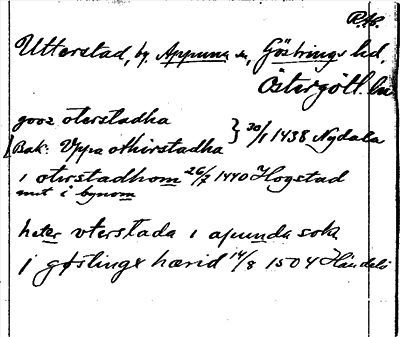 R.A.
Utterstad, by, Appuna sn, Göstrings hd,
Östergötl. ln
gooz oterstadha
[Bak: Vppa othirstadha } 30/1 1438 Nydala
i otirstadhom 26/7 1440 Hogstad
mit i bynom
heter vterstada i apunda sokn
j gøstingx hærid 14/8 1504 Händelö